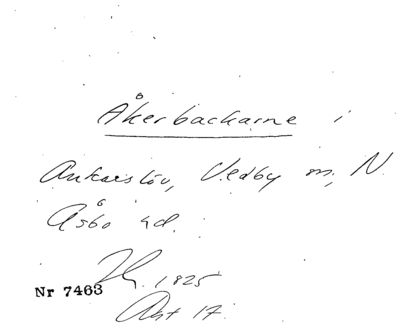 Åkerbackarne i
Ankarslöv, Vedby m, N
Åsbo hd.
1825
Nr 7463
Akt 17.